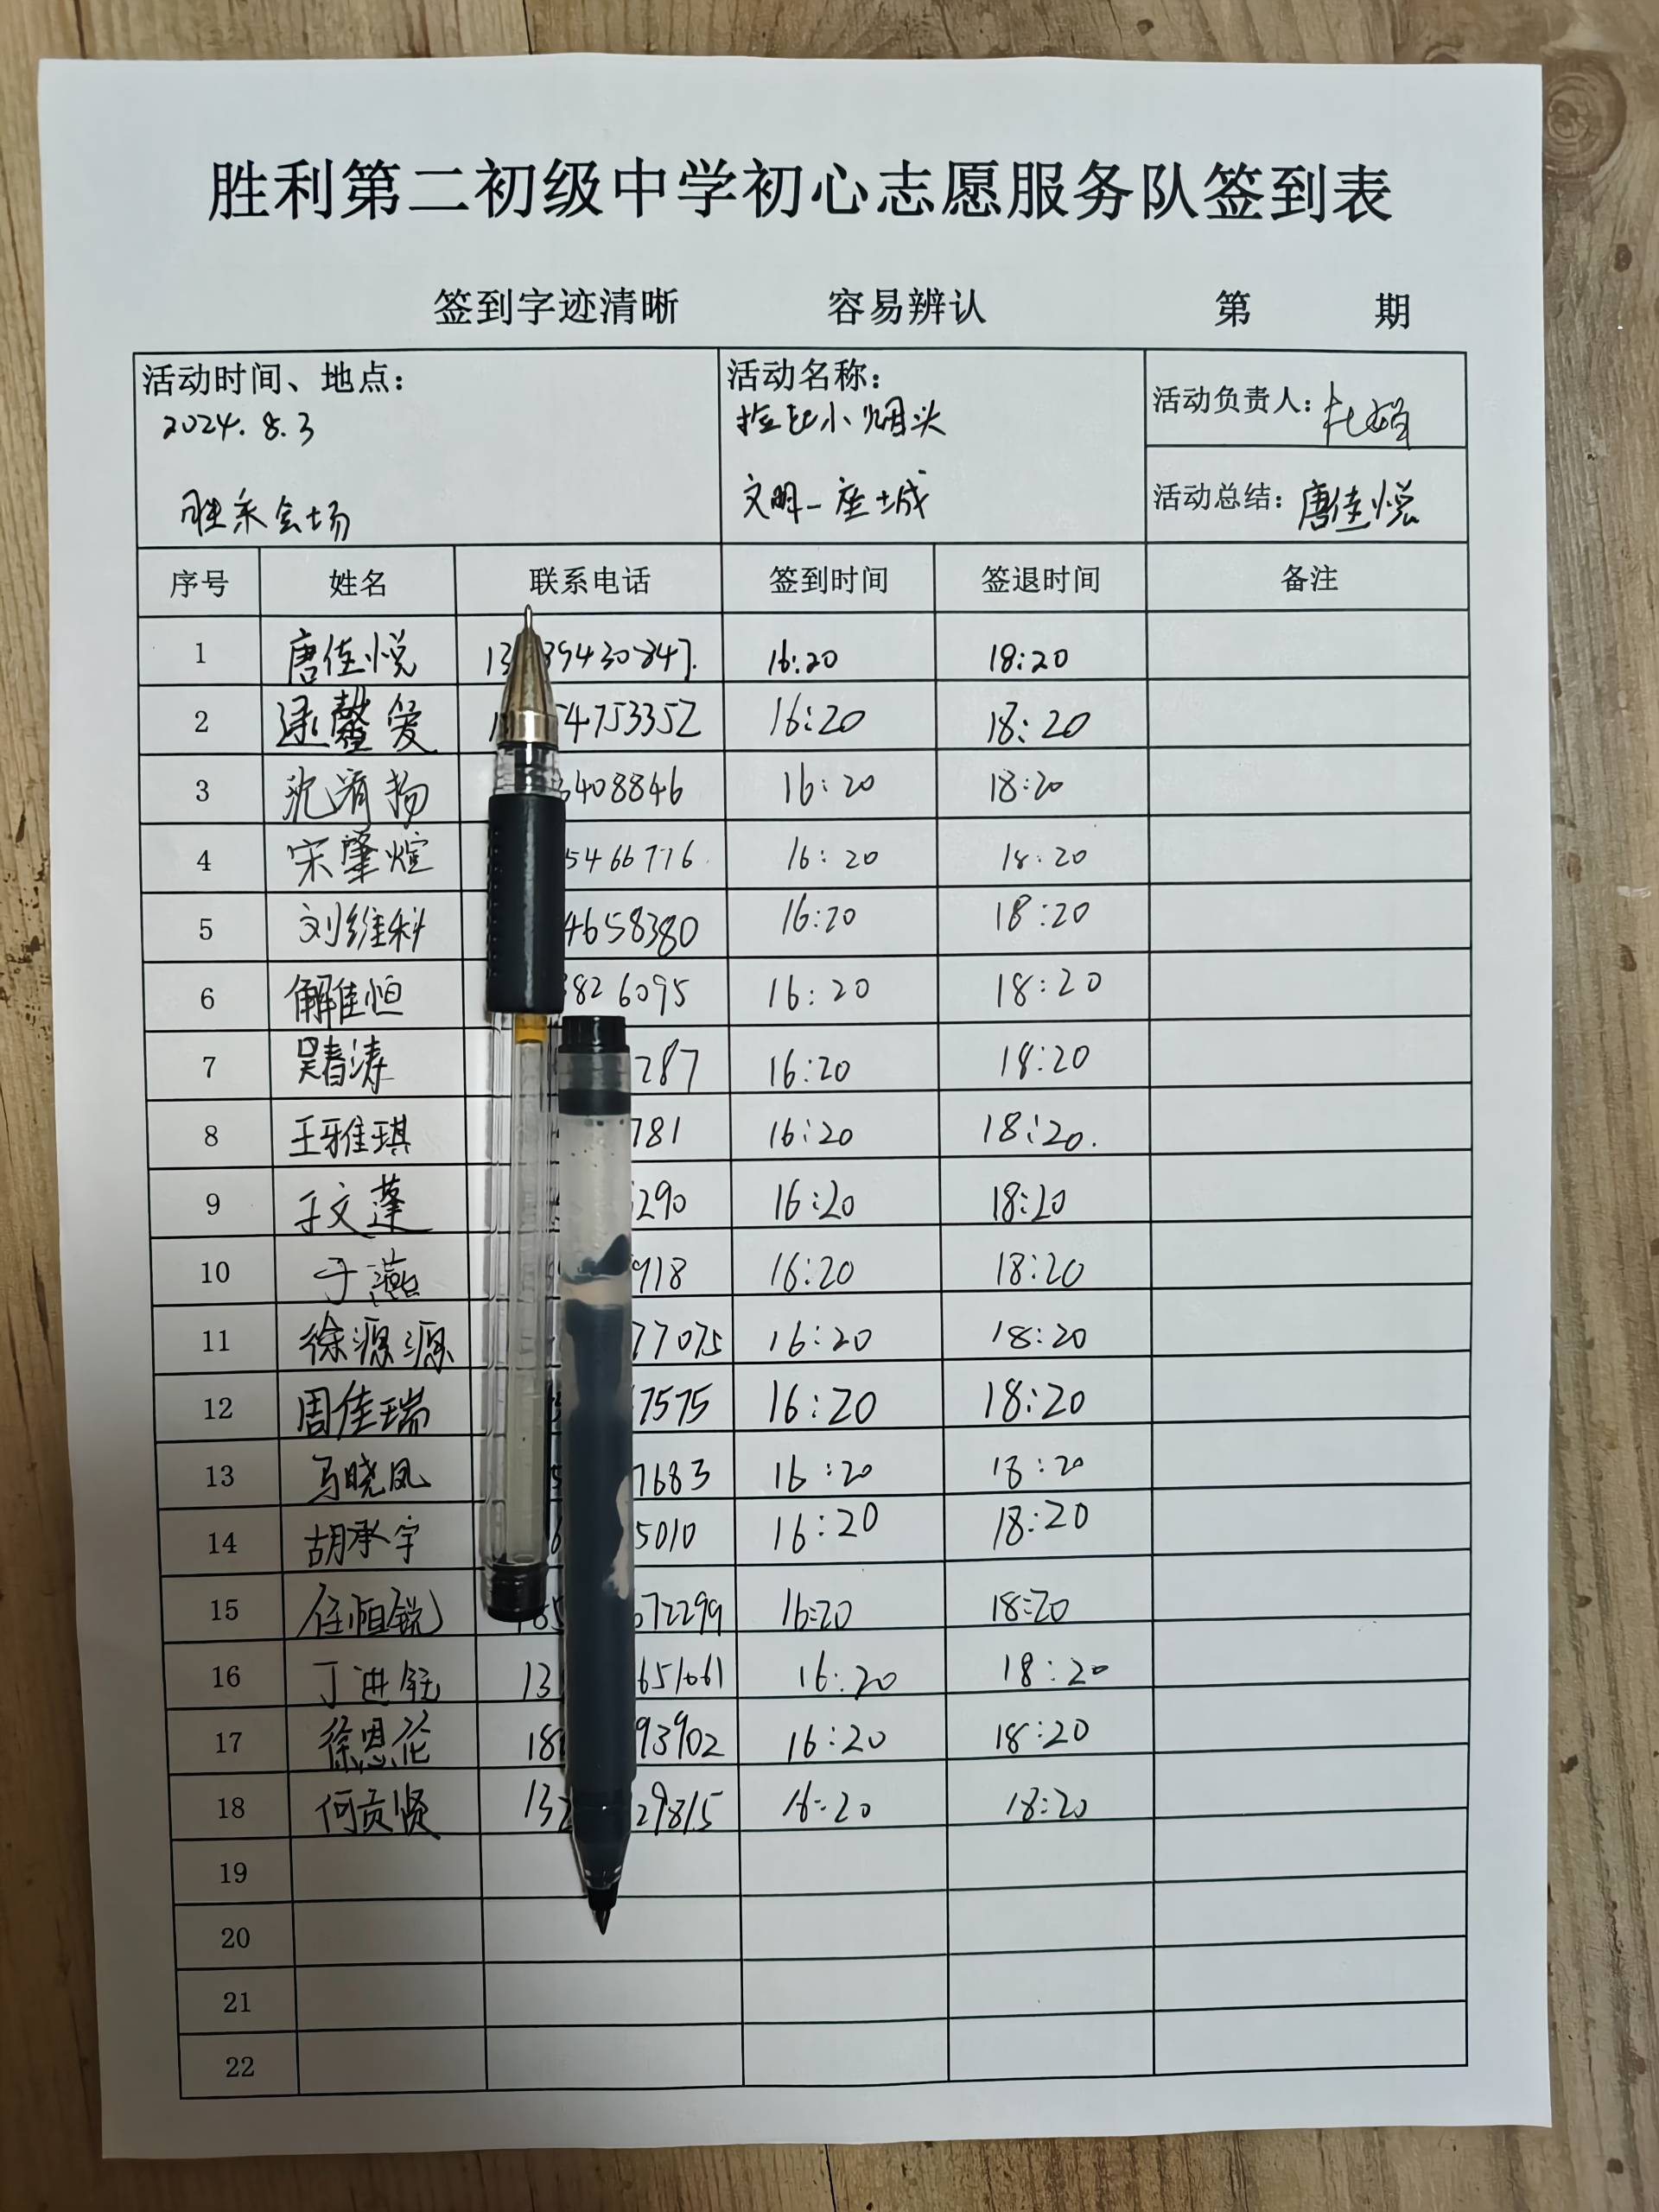 胜利第二初级中学初心志愿服务队签到表
签到字迹清晰 容易辨认 第 期
活动时间、地点：
2024.8.3
胜采会场
活动名称：
捡起小烟头
文明一座城
活动负责人：
活动总结：唐佳悦
序号 姓名 联系电话 签到时间 签退时间 备注
1 唐佳悦 13 39430847. 16:20 18:20
2 逯馨爱 1 4753352 16:20 18:20
3 沈清扬 408846 16:20 18:20
4 宋肇煊 5466776 16:20 18:20
5 刘维科 4658380 16:20 18:20
6 解佳恒 826095 16:20 18:20
7 吴春涛 287 16:20 18:20
8 王雅琪 781 16:20 18:20.
9 于文蓬 290 16:20 18:20
10 于燕 918 16:20 18:20
11 徐源源 77075 16:20 18:20
12 周佳瑞 7575 16:20 18:20
13 马晓凤 7683 16:20 18:20
14 胡承宇 5010 16:20 18:20
15 任恒锐 185 672299 16:20 18:20
16 丁进钰 13 651061 16:20 18:20
17 徐恩伦 18 93902 16:20 18:20
18 何贡贤 132 29815 16:20 18:20
19
20
21
22